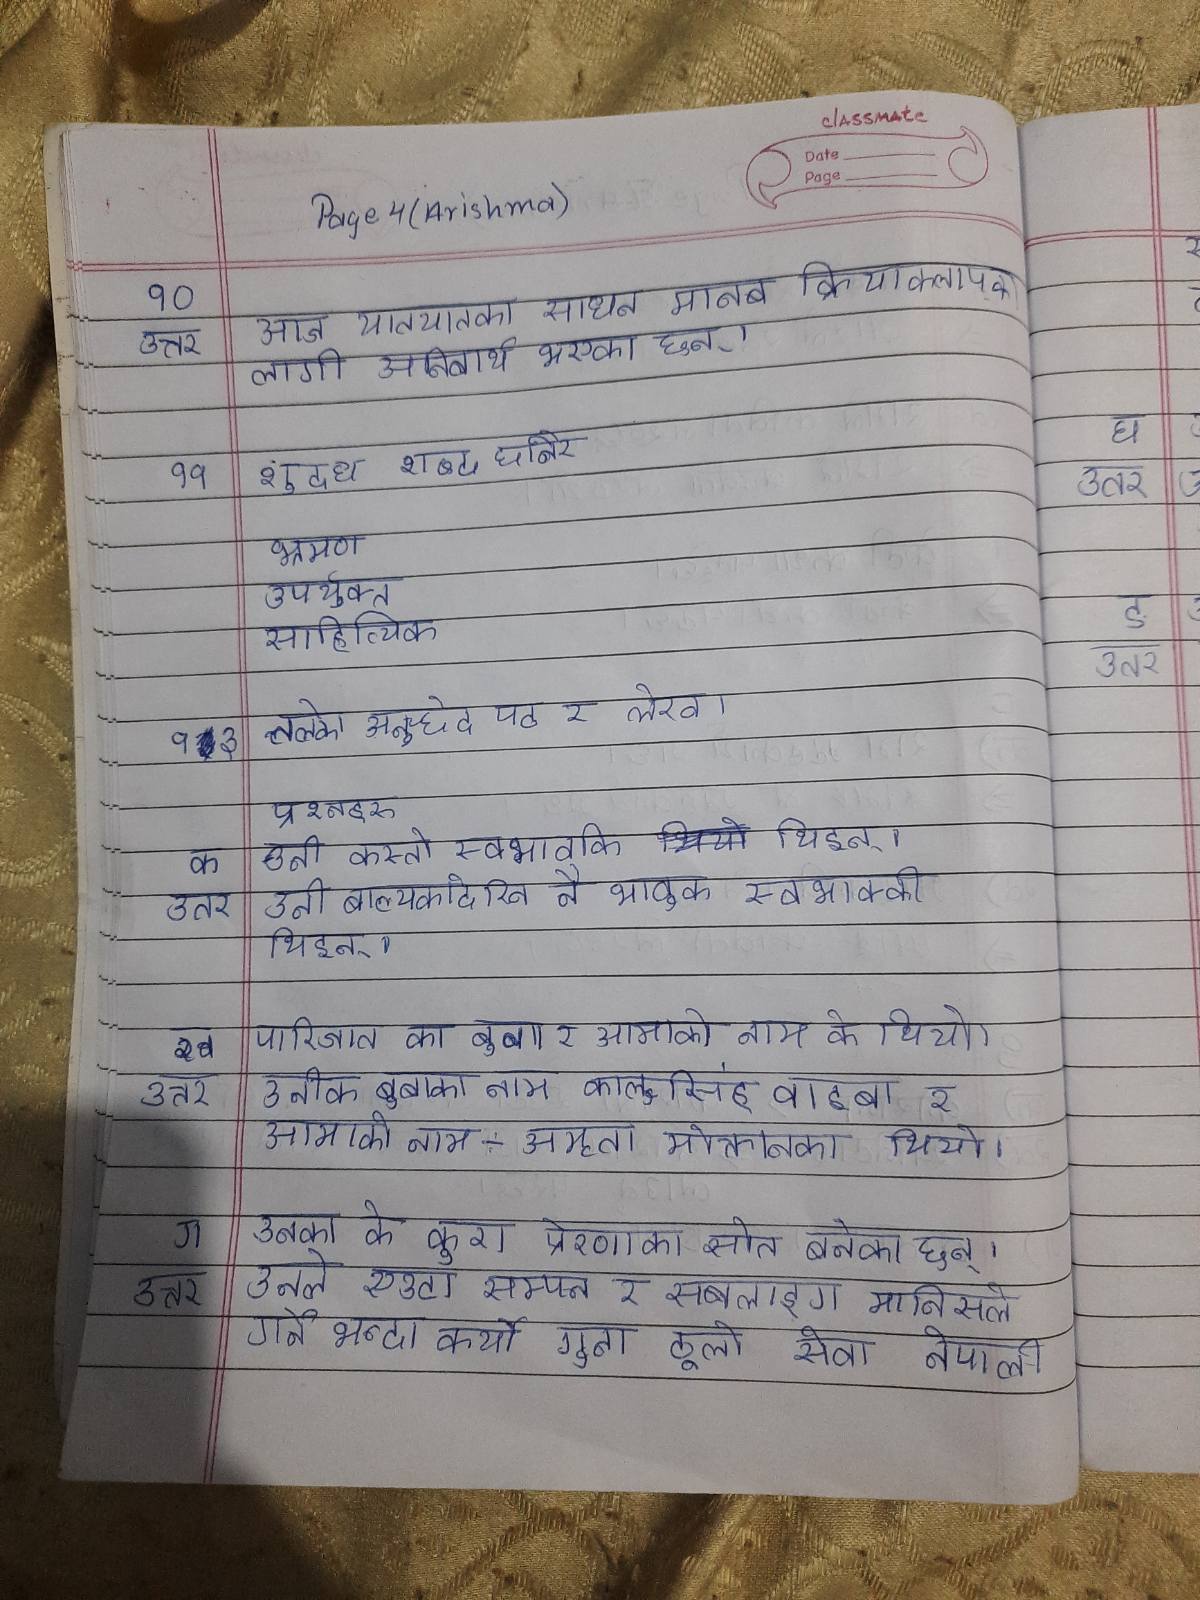 classmate
Date
Page
Page 4 (Arishma)
१०
उत्तर आज यातयातका साधन मानब क्रियाकलापका
लागी अनिबार्य भएका छन्।
११ शुद्ध शब्द घनिर
भ्रमण
उपर्युक्त
साहित्यिक
१३ तलको अनुछेद पढ र लेख।
प्रश्नहरु
क उनी कस्तो स्वभावकि थिइन्।
उतर उनी बाल्यकादेखि नै भावुक स्वभाक्की
थिइन्।
ख पारिजात का बुबा र आमाको नाम के थियो।
उतर उनीक बुबाका नाम कालुसिंह वाइबा र
आमाको नाम ÷ अमृता मोक्तानका थियो।
ग उनका के कुरा प्रेरणाका स्रोत बनेका छन्।
उत्तर उनले एउटा सम्पन र सबलाङ्ग मानिसले
गर्ने भन्दा कयौं गुना ठूलो सेवा नेपाली
घ
उतर
ङ
उतर